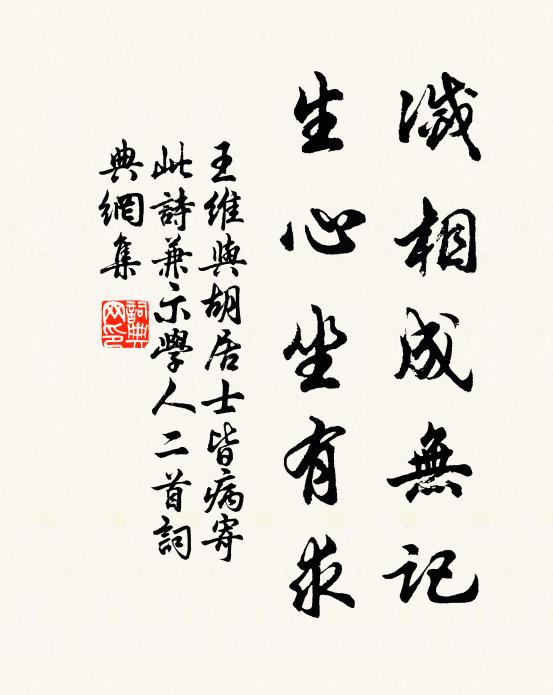 滅相成無記
生心坐有求
王維與胡居士皆病寄
此詩兼示學人二首詞
典網集
詞典
网印